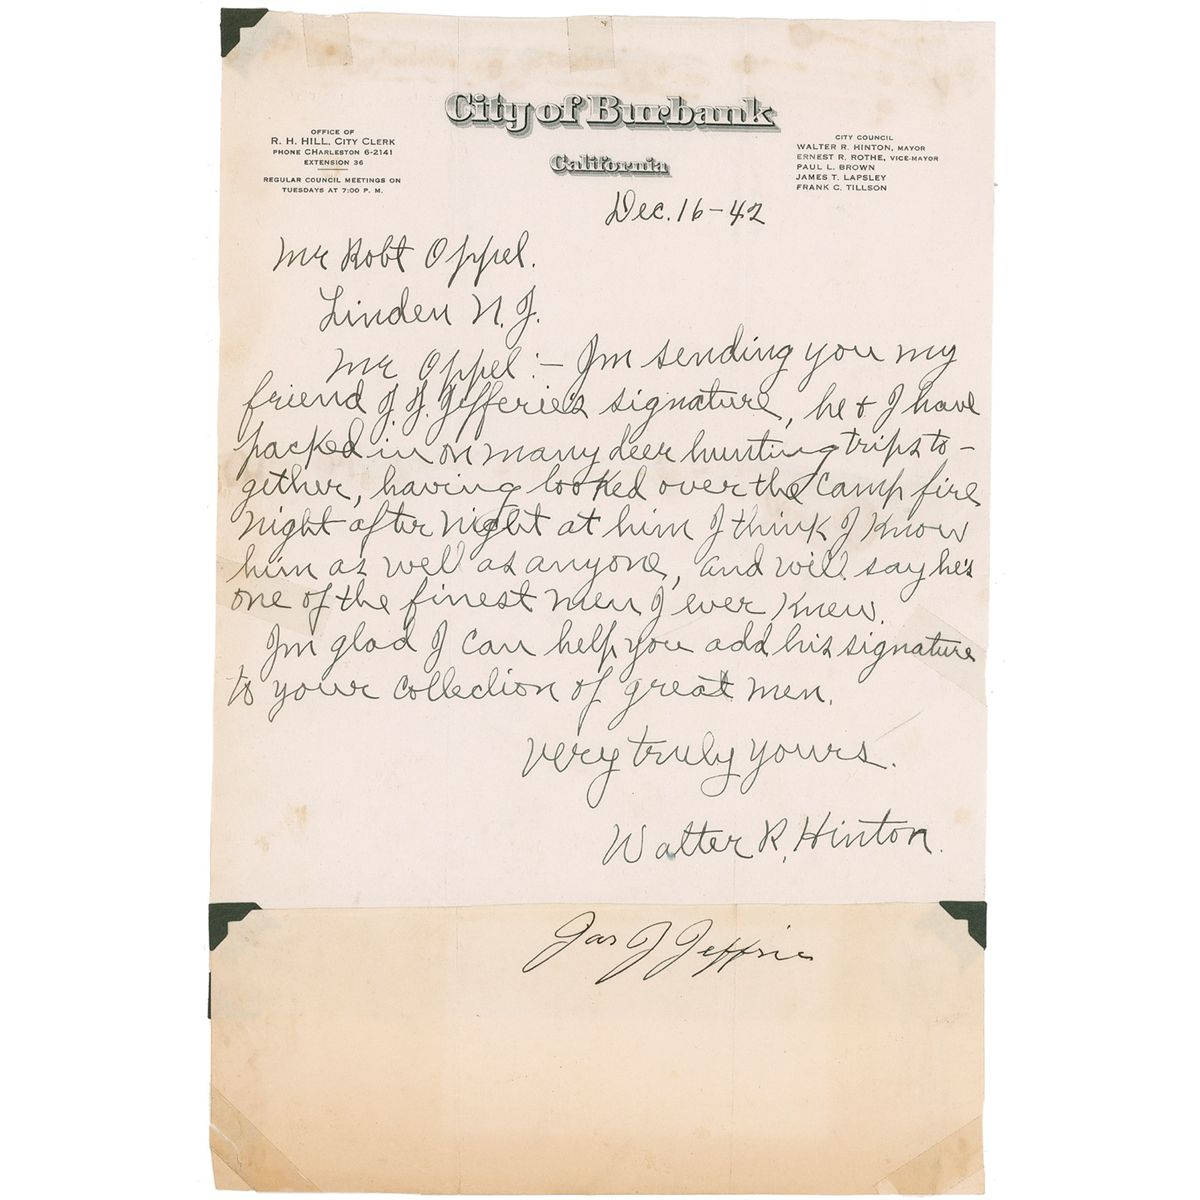 City of Burbank
California
OFFICE OF
R. H. HILL, CITY CLERK
PHONE CHARLESTON 6-2141
EXTENSION 36
REGULAR COUNCIL MEETINGS ON
TUESDAYS AT 7:00 P. M.
CITY COUNCIL
WALTER R. HINTON, MAYOR
ERNEST R. ROTHE, VICE-MAYOR
PAUL L. BROWN
JAMES T. LAPSLEY
FRANK C. TILLSON
Dec. 16-42
Mr Robt Oppel.
Linden N. J.
Mr Oppel:- I'm sending you my
friend J. J. Jefferie's signature, he & I have
packed in on many deer hunting trips to-
gether, having looked over the camp fire
night after night at him I think I know
him as well as anyone, and will say he's
one of the finest men I ever knew.
I'm glad I can help you add his signature
to your collection of great men.
Very truly yours.
Walter R. Hinton.
Jas J Jeffries